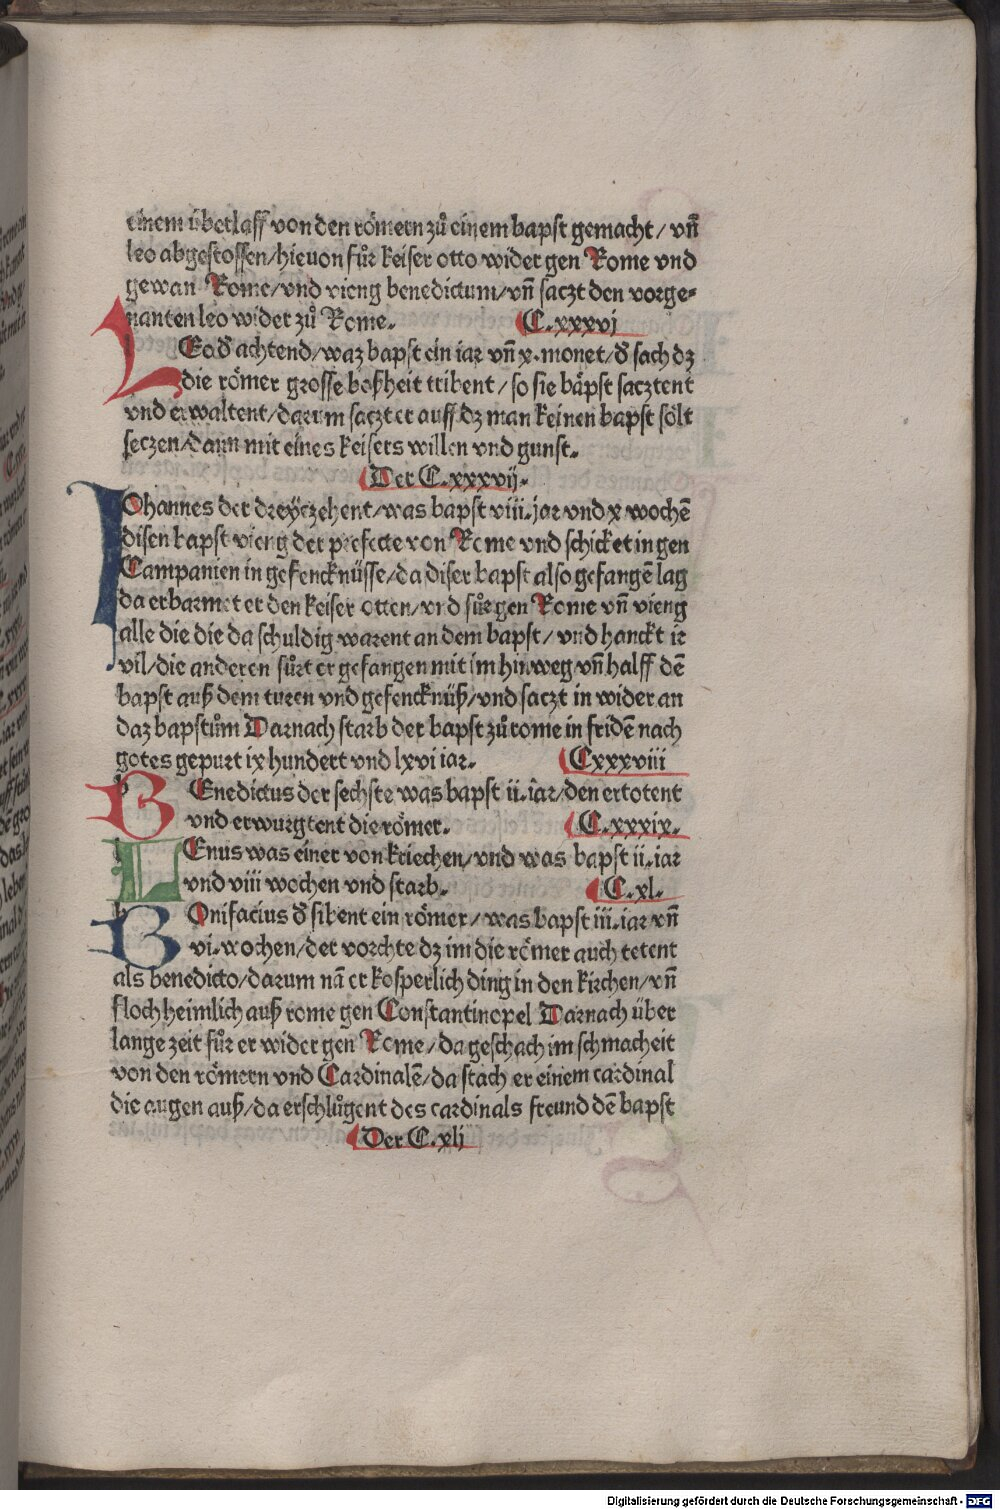 einem überlaff von den römern zů einem bapst gemacht / vñ
leo abgestossen / hieuon fůr keiser otto wider gen Rome vnd
gewan Rome / vnd vieng benedictum / vñ saczt den vorge⸗
nanten leo wider zů Rome. C.xxxvj
LEo đ achtend / waz bapst ein iar vñ x.monet / đ sach dz
die römer grosse boßheit tribent / so sie bäpst sacztent
vnd erwaltent / darum saczt er auff dz man keinen bapst sölt
seczen / dann mit eines keisers willen vnd gunst.
Der C.xxxvij.
IOhannes der dreyczehent / was bapst viii.jar vnd x wochē
disen bapst vieng der prefecte von Rome vnd schicket in gen
Campanien in gefencknüsse / da diser bapst also gefangē lag
da erbarmet er den keiser otten / vnd fůr gen Rome vñ vieng
alle die die da schuldig warent an dem bapst / vnd hanckt ir
vil / die anderen fůrt er gefangen mit im hinweg vñ halff dē
bapst auß dem turen vnd gefencknüß / vnd saczt in wider an
daz bapstům Darnach starb der bapst zů rome in fridē nach
gotes gepurt ix hundert vnd lxvi iar. Cxxxviii
BEnedictus der sechste was bapst ii.iar / den ertotent
vnd erwurgtent die römer. C.xxxix.
LEnus was einer von kriechen / vnd was bapst ii.iar
vnd viii wochen vnd starb. C.xl.
BOnifacius đ sibent ein römer / was bapst iii.iar vñ
vi.wochen / der vorchte dz im die römer auch tetent
als benedicto / darum nā er kosperlich ding in den kirchen / vñ
floch heimlich auß rome gen Constantinopel Darnach über
lange zeit fůr er wider gen Rome / da geschach im schmacheit
von den römern vnd Cardinalē / da stach er einem cardinal
die augen auß / da erschlůgent des cardinals freund dē bapst
Der C.xlj
Digitalisierung gefördert durch die Deutsche Forschungsgemeinschaft - DFG